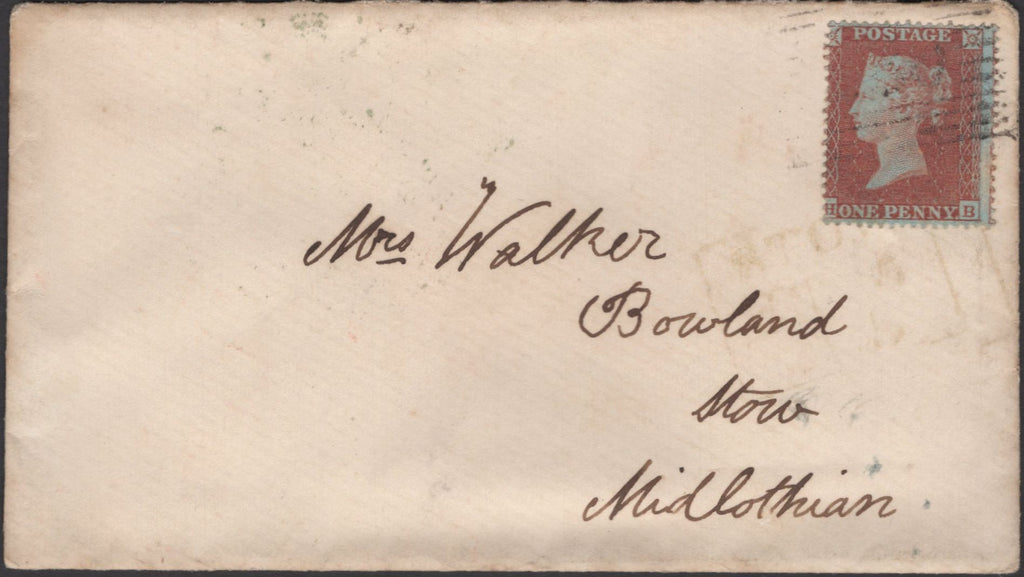 POSTAGE
H ONE PENNY B
Mrs Walker
Bowland
Stow
Midlothian